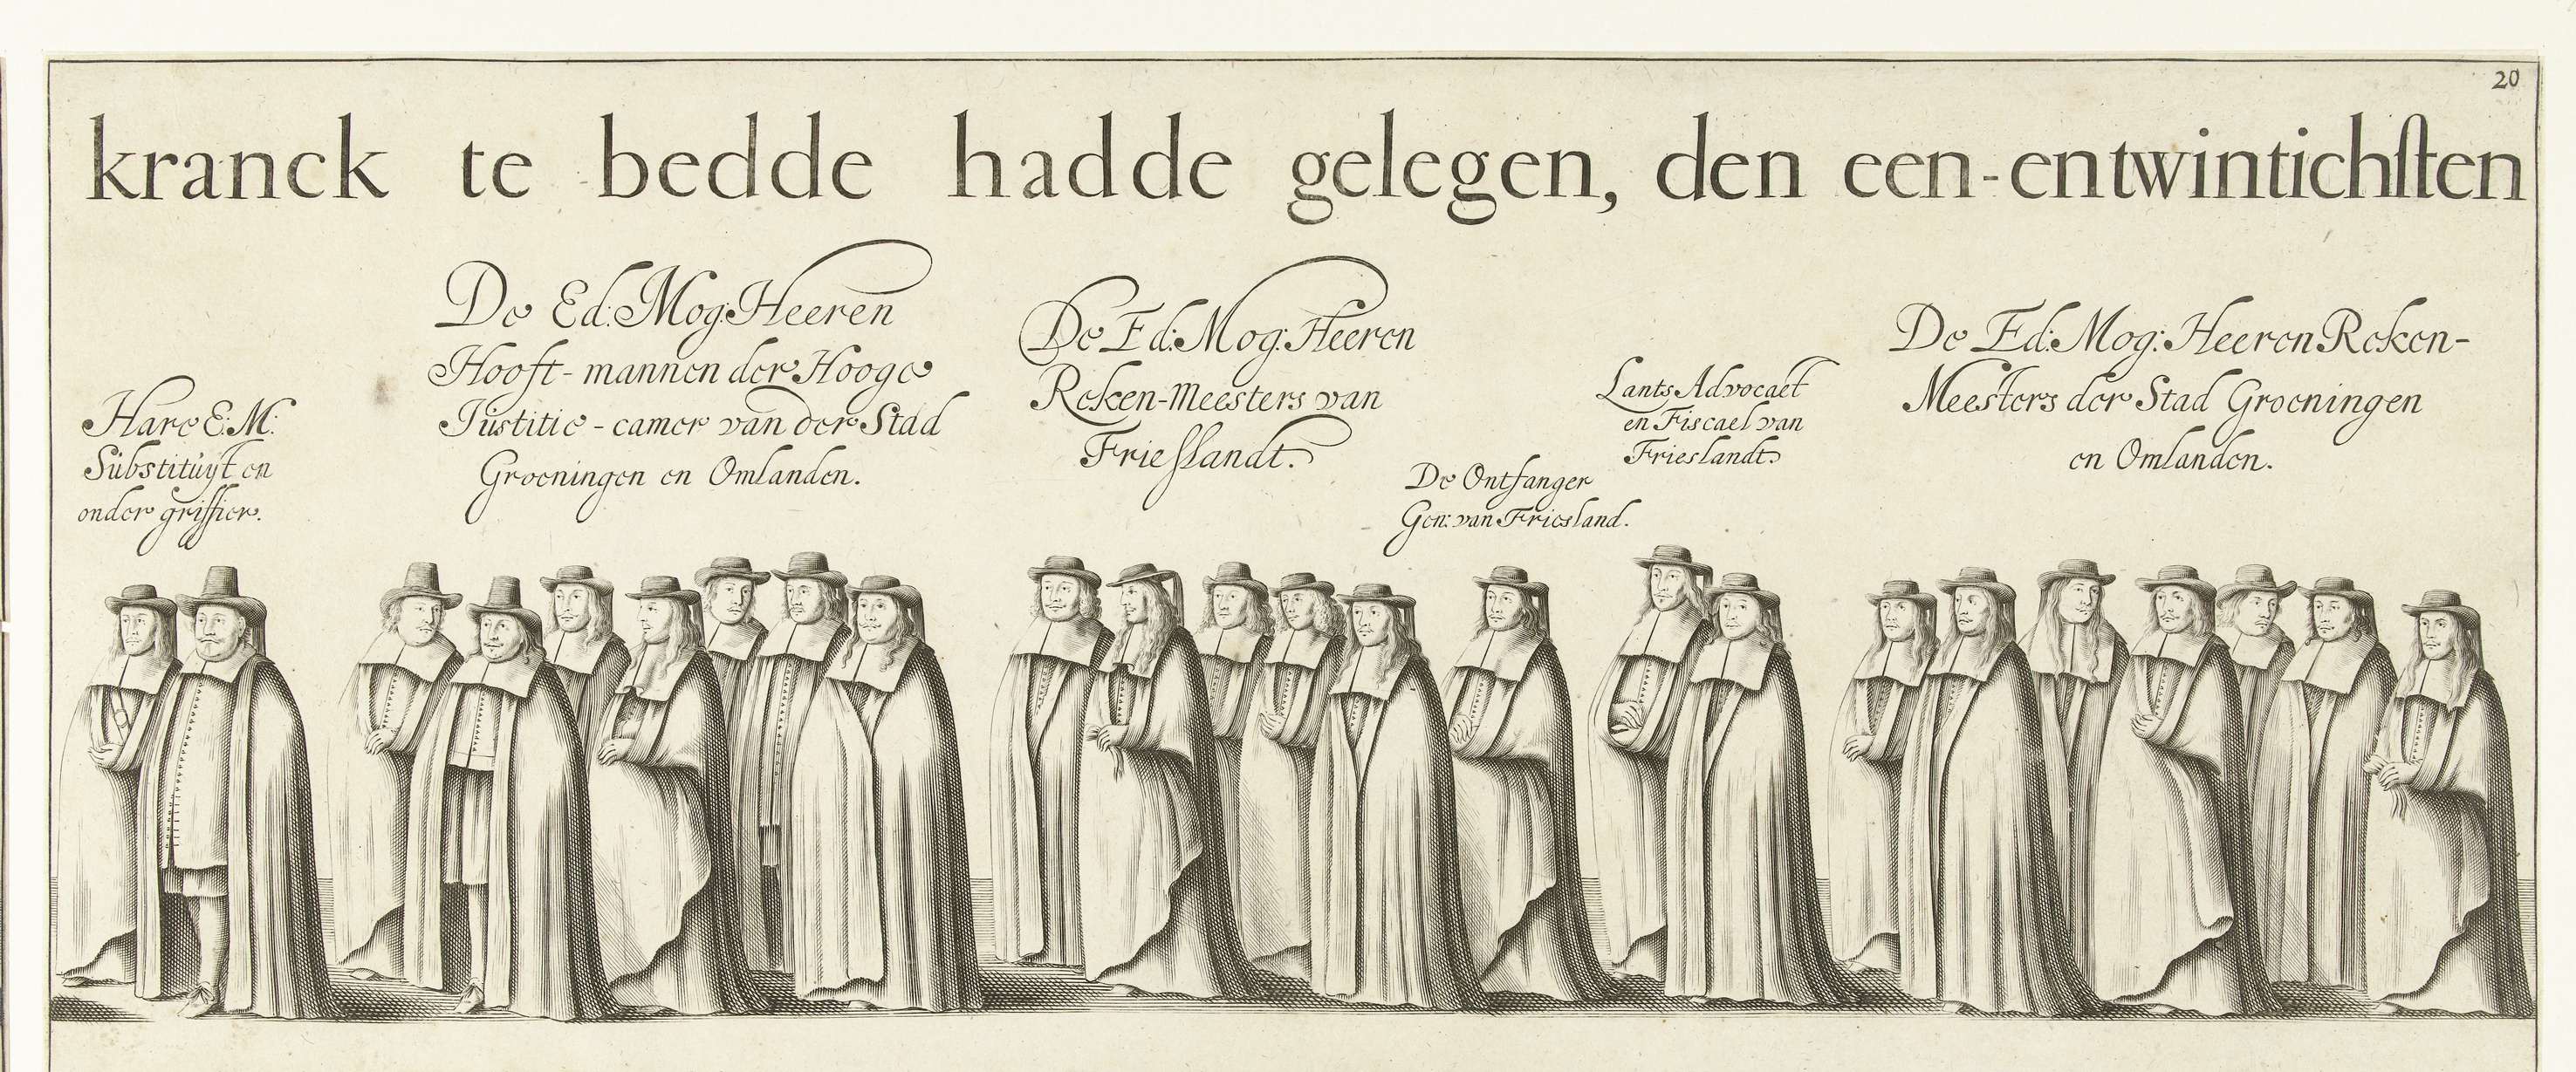 20
kranck te bedde hadde gelegen, den een-entwintichſten
Hare E: M:
Substituyt en
onder griffier.
De Ed: Mog: Heeren
Hooft-mannen der Hooge
Iustitie-camer van der Stad
Groeningen en Omlanden.
De Ed: Mog: Heeren
Reken-Meesters van
Frieſlandt.
De Ontfanger
Gen: van Friesland.
Lants Advocaet
en Fiscael van
Frieslandt.
De Ed: Mog: Heeren Reken-
Meesters der Stad Groeningen
en Omlanden.